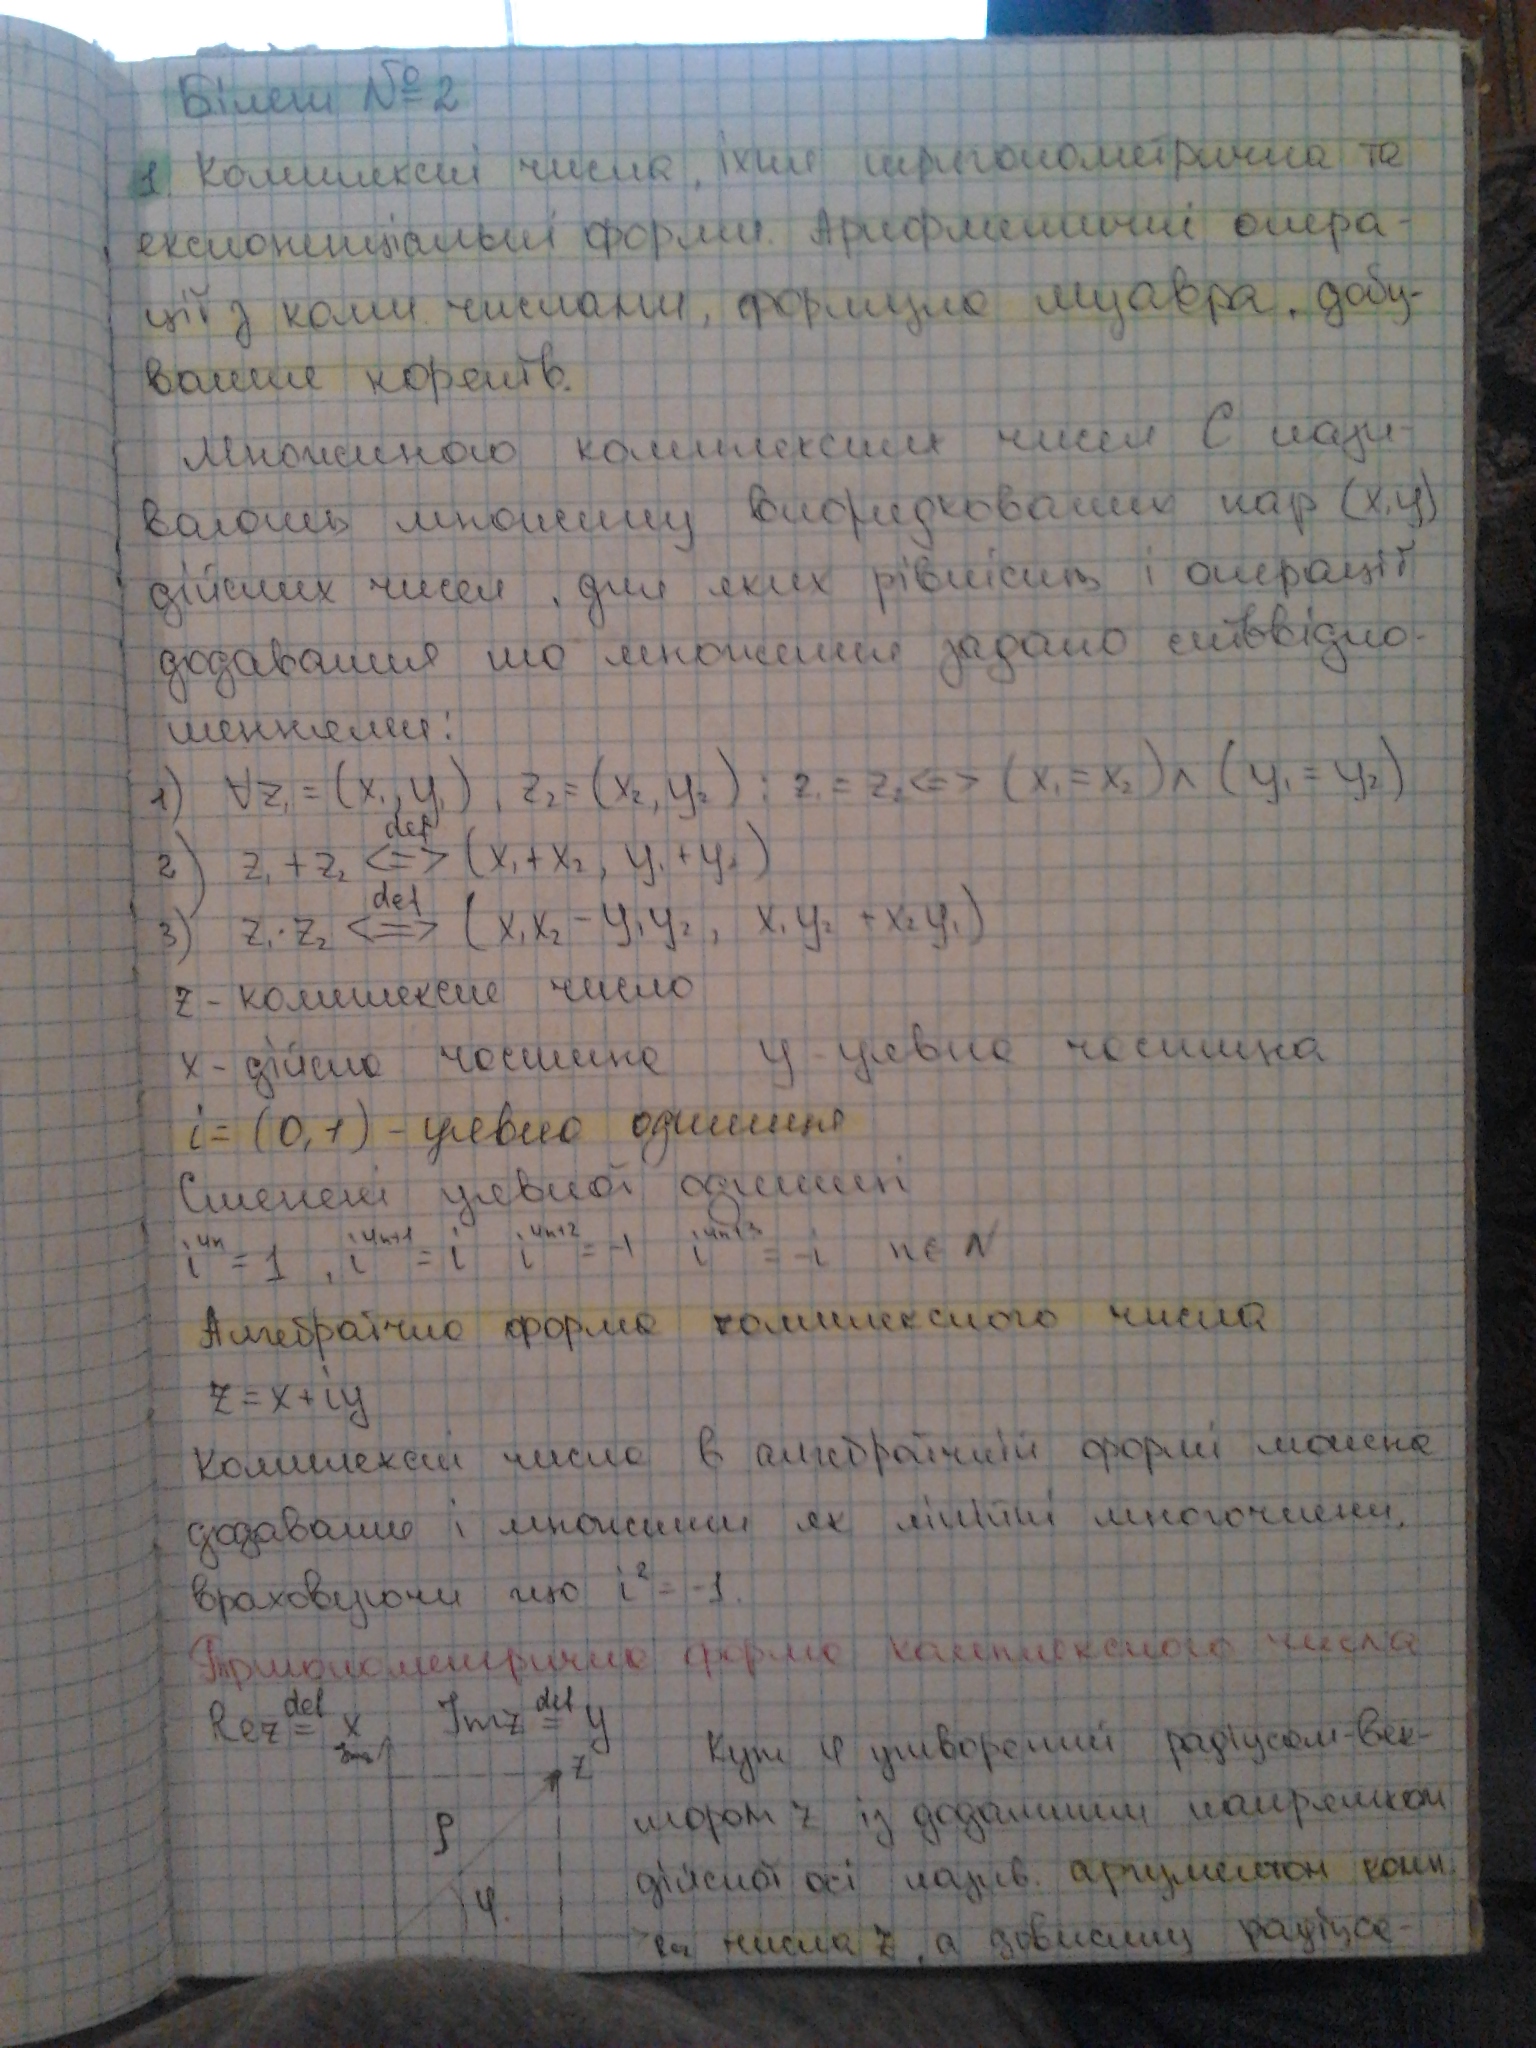 Білет №2
1. Комплексні числа, їхня тригонометрична та
експоненціальні форми. Арифметичні опера-
ції з комп. числами, формула Муавра, добу-
вання коренів.
Множиною комплексних чисел С нази-
вають множину впорядкованих пар (x,y)
дійсних чисел, для яких рівність і операції
додавання та множення задано співвідно-
шеннями:
1) ∀z₁=(x₁,y₁), z₂=(x₂,y₂): z₁=z₂<=>(x₁=x₂)∧(y₁=y₂)
2) z₁+z₂ <=> def (x₁+x₂, y₁+y₂)
3) z₁·z₂ <=> def (x₁x₂-y₁y₂, x₁y₂+x₂y₁)
z - комплексне число
x - дійсна частина y - уявна частина
i=(0,1) - уявна одиниця
Степені уявної одиниці
i⁴ⁿ=1, i⁴ⁿ⁺¹=i i⁴ⁿ⁺²=-1 i⁴ⁿ⁺³=-i n∈N
Алгебраїчна форма комплексного числа
z=x+iy
Комплексні числа в алгебраїчній формі можна
додавати і множити як лінійні многочлени,
враховуючи що i²=-1.
Тригонометрична форма комплексного числа
Rez def= x Imz def= y
Imz
z
ρ
φ
Кут φ утворений радіусом-век-
тором z із додатним напрямком
дійсної осі назив. аргументом комп
числа z, а довжину радіуса-